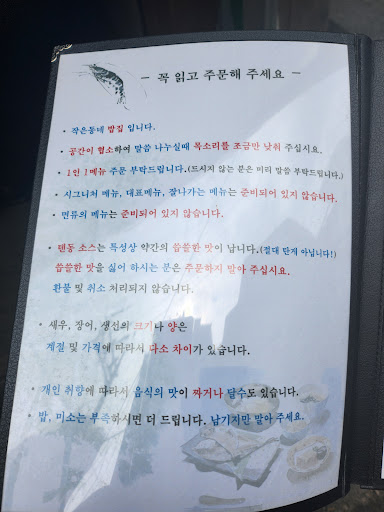 - 꼭 읽고 주문해 주세요 -
• 작은동네 밥집 입니다.
• 공간이 협소하여 말씀 나누실때 목소리를 조금만 낮춰 주십시요.
• 1인 1메뉴 주문 부탁드립니다.(드시지 않는 분은 미리 말씀 부탁드립니다.)
• 시그니처 메뉴, 대표메뉴, 잘나가는 메뉴는 준비되어 있지 않습니다.
• 면류의 메뉴는 준비되어 있지 않습니다.
• 텐동 소스는 특성상 약간의 씁쓸한 맛이 납니다.(절대 단게 아닙니다!)
씁쓸한 맛을 싫어 하시는 분은 주문하지 말아 주십시요.
환불 및 취소 처리되지 않습니다.
• 새우, 장어, 생선의 크기나 양은
계절 및 가격에 따라서 다소 차이가 있습니다.
• 개인 취향에 따라서 음식의 맛이 짜거나 달수도 있습니다.
• 밥, 미소는 부족하시면 더 드립니다. 남기지만 말아 주세요.